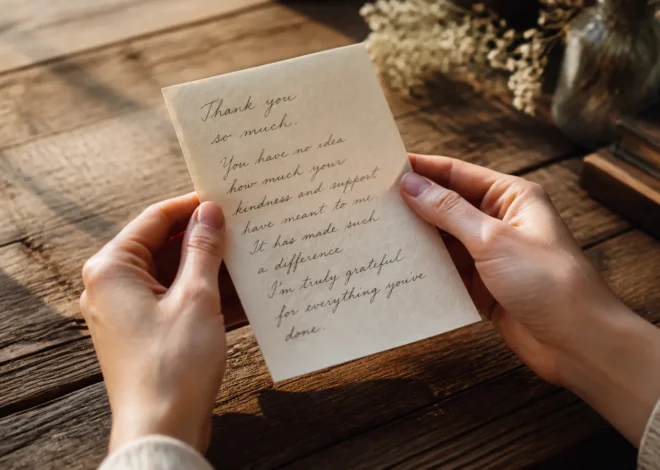 Thank you
so much.
You have no idea
how much your
kindness and support
have meant to me.
It has made such
a difference.
I'm truly grateful
for everything you've
done.